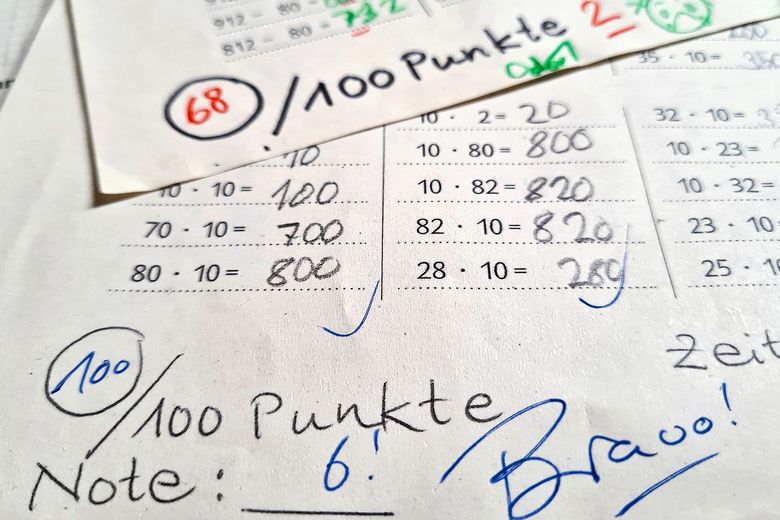 912 - 80 =
812 - 80 = 732
68 /100 Punkte 2
35 · 10=
10 · 2= 20
32 · 10=
10
10 · 80= 800
10 · 23=
10 · 10= 100
10 · 82= 820
10 · 32=
70 · 10= 700
82 · 10= 820
23 · 10
80 · 10= 800
28 · 10= 280
25 · 10
100 /100 Punkte
Zeit
Note: 6!
Bravo!